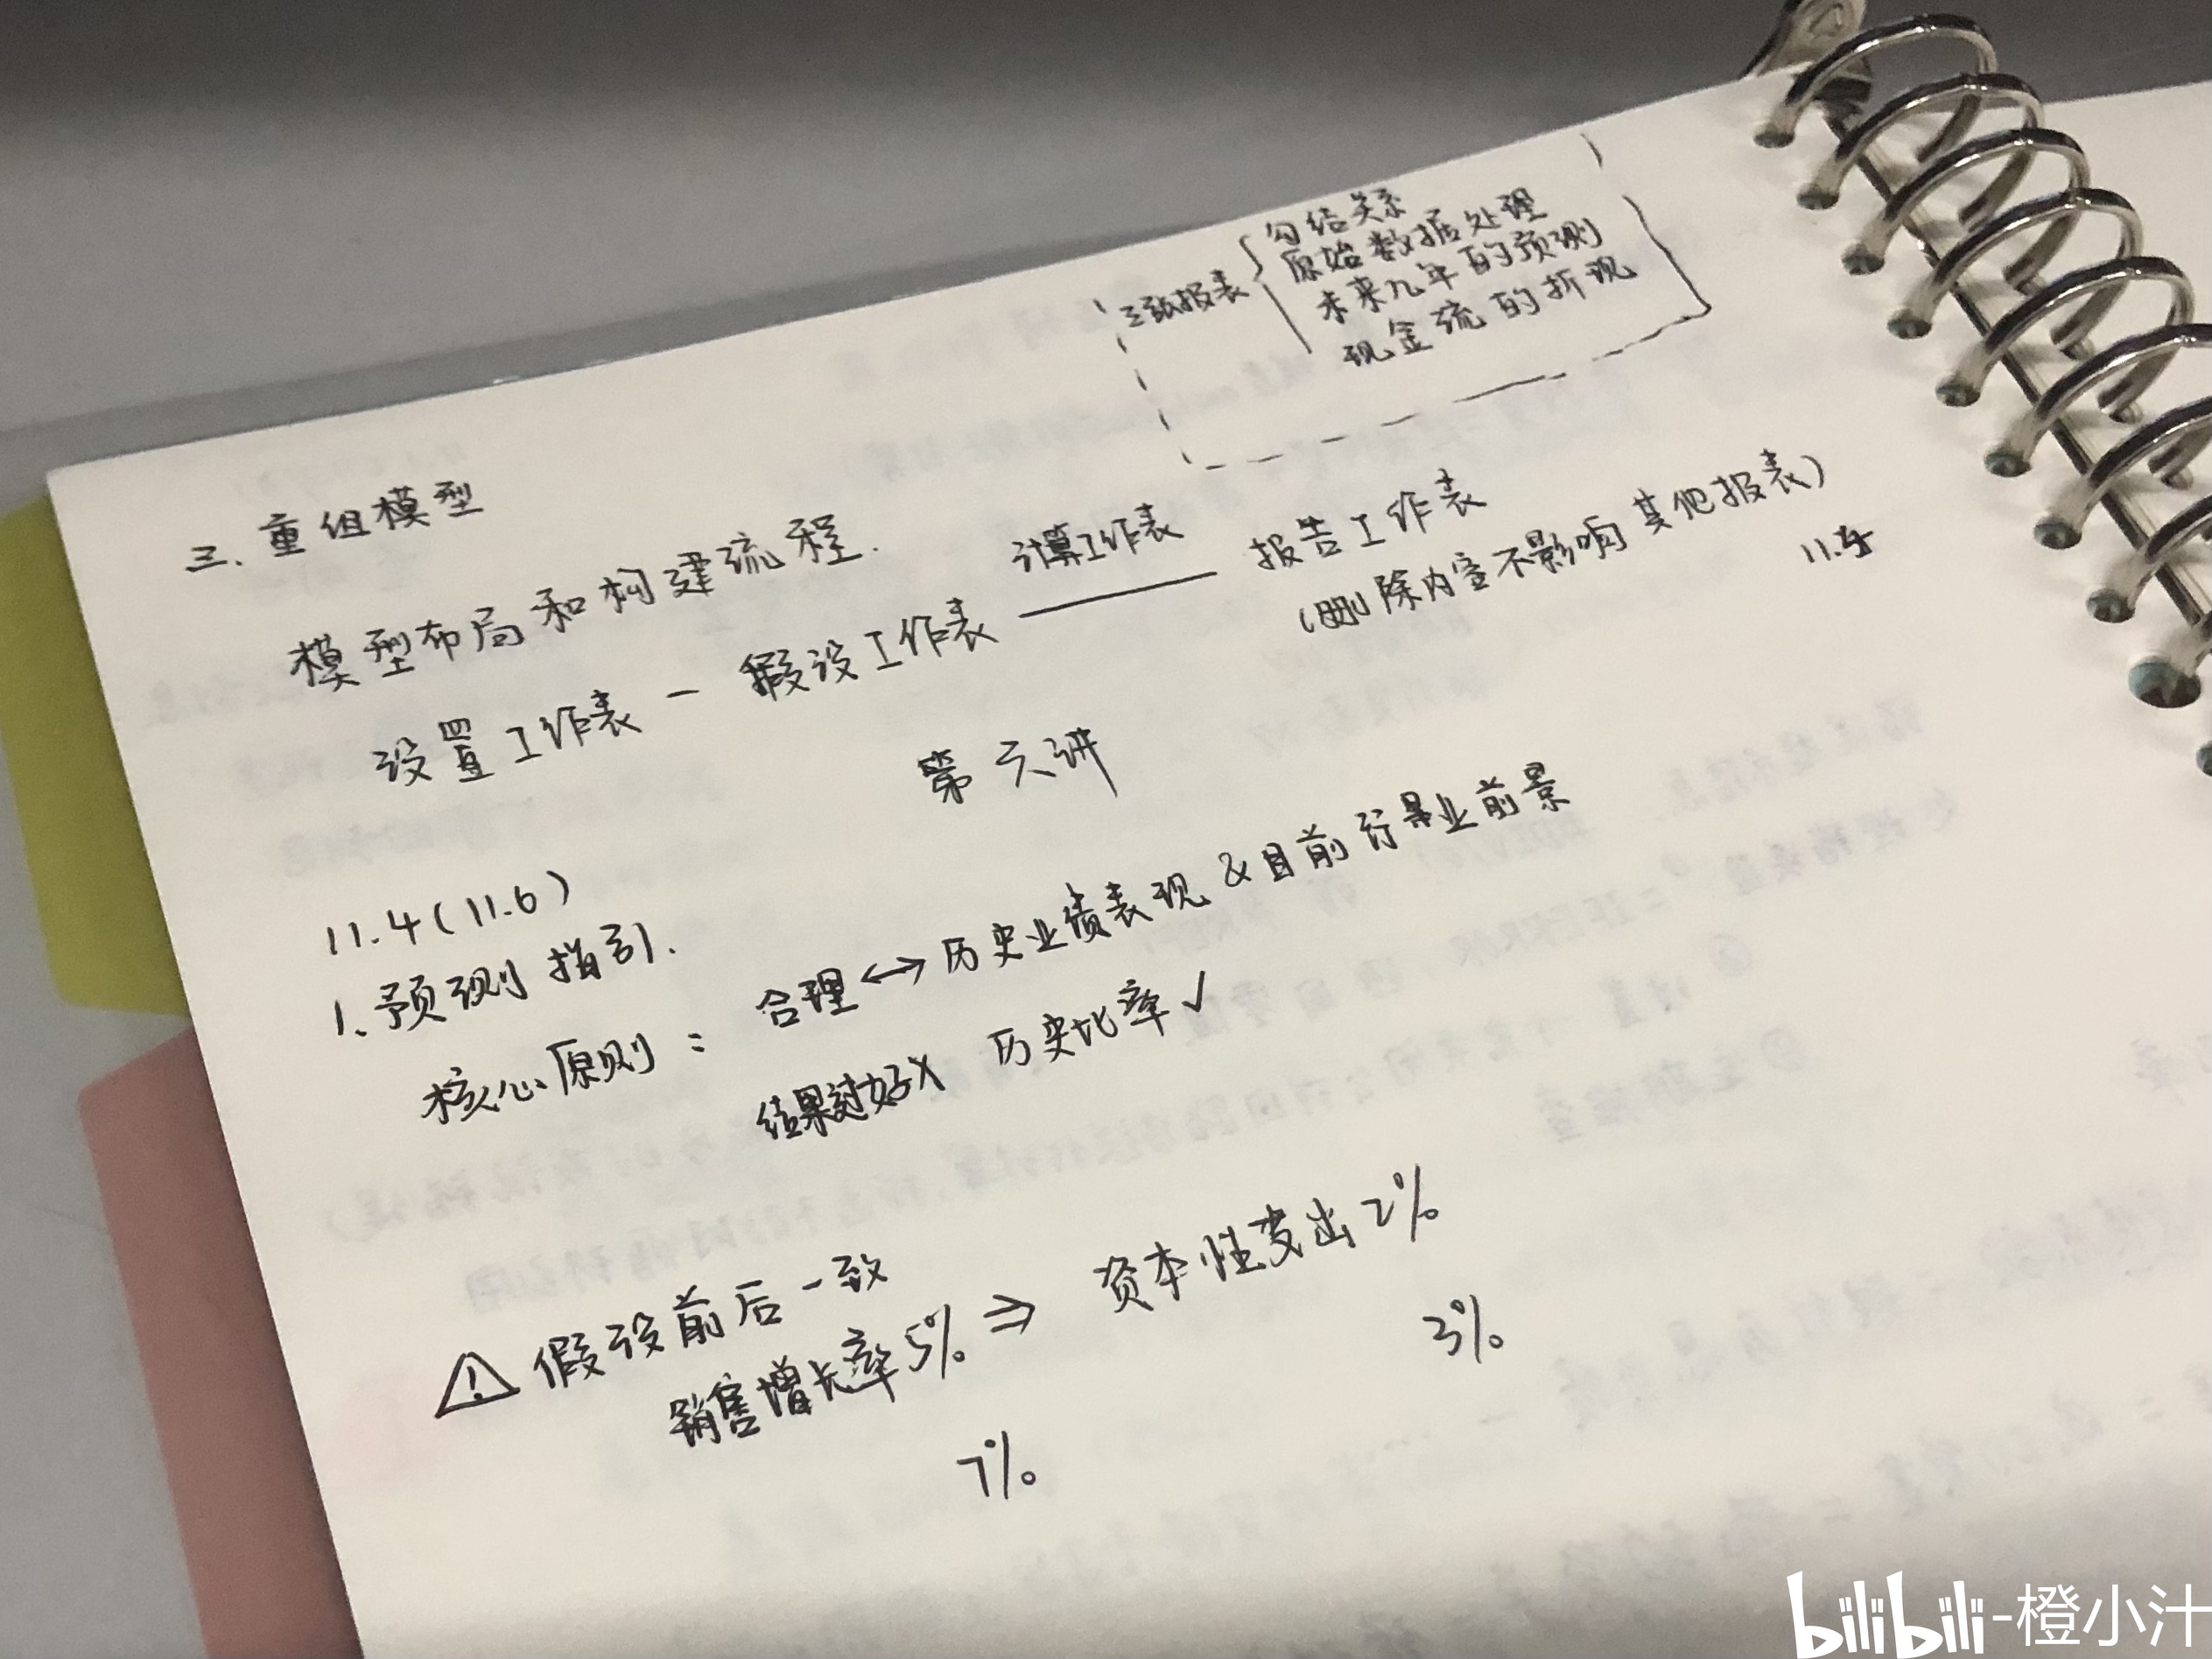 三张报表
勾结关系
原始数据处理
未来几年的预测
现金流的折现
三、重组模型
模型布局和构建流程.
设置工作表 — 假设工作表 计算工作表 报告工作表
(删除内容不影响其他报表)
11.5
第六讲
11.4(11.6)
1.预测指引.
核心原则: 合理↔历史业绩表现&目前行业前景
结果过好X 历史比率✓
⚠假设前后一致
销售增长率5% ⇒ 资本性支出2%
7% 3%
bilibili-橙小汁